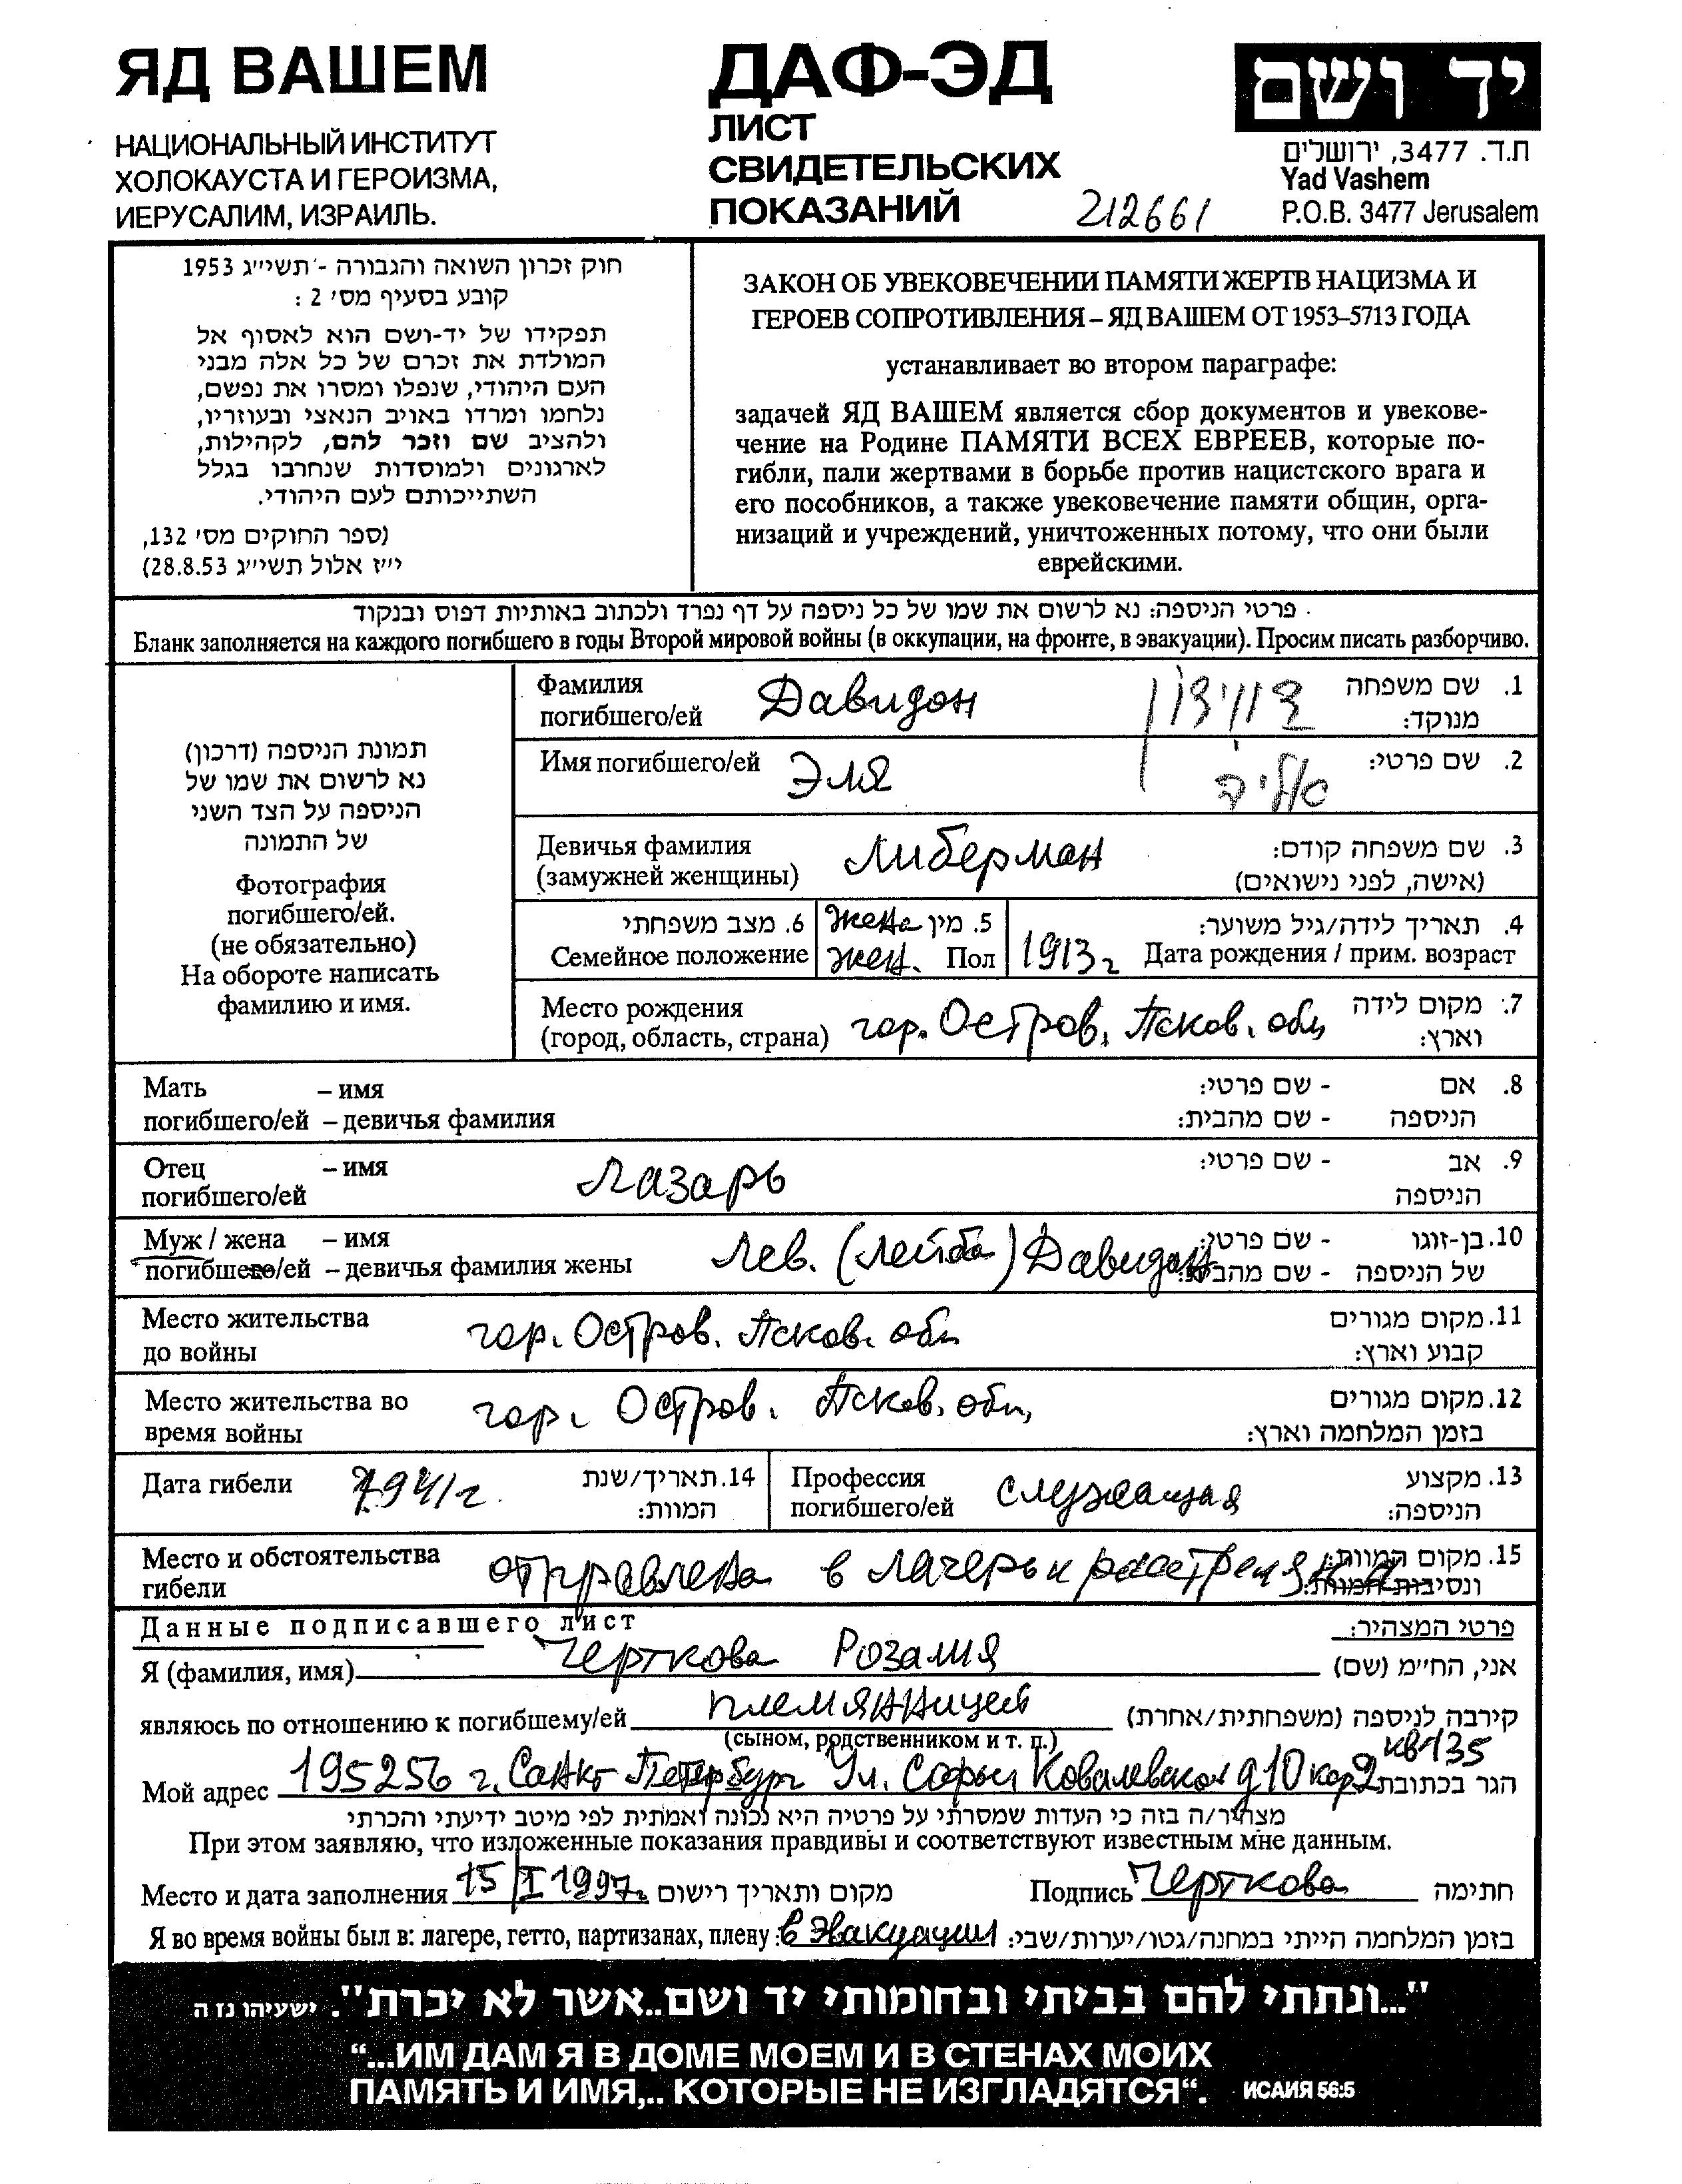 ЯД ВАШЕМ
НАЦИОНАЛЬНЫЙ ИНСТИТУТ
ХОЛОКАУСТА И ГЕРОИЗМА,
ИЕРУСАЛИМ, ИЗРАИЛЬ.
ДАФ-ЭД
ЛИСТ
СВИДЕТЕЛЬСКИХ
ПОКАЗАНИЙ
212661
יד ושם
ת.ד. 3477, ירושלים
Yad Vashem
P.O.B. 3477 Jerusalem
חוק זכרון השואה והגבורה - תשי״ג 1953
קובע בסעיף מס׳ 2 :
תפקידו של יד-ושם הוא לאסוף אל
המולדת את זכרם של כל אלה מבני
העם היהודי, שנפלו ומסרו את נפשם,
נלחמו ומרדו באויב הנאצי ובעוזריו,
ולהציב שם וזכר להם, לקהילות,
לארגונים ולמוסדות שנחרבו בגלל
השתייכותם לעם היהודי.
(ספר החוקים מס׳ 132,
י״ז אלול תשי״ג 28.8.53)
ЗАКОН ОБ УВЕКОВЕЧЕНИИ ПАМЯТИ ЖЕРТВ НАЦИЗМА И
ГЕРОЕВ СОПРОТИВЛЕНИЯ – ЯД ВАШЕМ ОТ 1953–5713 ГОДА
устанавливает во втором параграфе:
задачей ЯД ВАШЕМ является сбор документов и увекове-
чение на Родине ПАМЯТИ ВСЕХ ЕВРЕЕВ, которые по-
гибли, пали жертвами в борьбе против нацистского врага и
его пособников, а также увековечение памяти общин, орга-
низаций и учреждений, уничтоженных потому, что они были
еврейскими.
פרטי הניספה: נא לרשום את שמו של כל ניספה על דף נפרד ולכתוב באותיות דפוס ובנקוד
Бланк заполняется на каждого погибшего в годы Второй мировой войны (в оккупации, на фронте, в эвакуации). Просим писать разборчиво.
תמונת הניספה (דרכון)
נא לרשום את שמו של
הניספה על הצד השני
של התמונה
Фотография
погибшего/ей.
(не обязательно)
На обороте написать
фамилию и имя.
Фамилия Давидон דוידון 1. שם משפחה
погибшего/ей מנוקד:
Имя погибшего/ей Эля אליה 2. שם פרטי:
Девичья фамилия Либерман 3. שם משפחה קודם:
(замужней женщины) (אישה, לפני נישואים)
6. מצב משפחתי жена 5. מין 4. תאריך לידה/גיל משוער:
Семейное положение жен. Пол 1913 г Дата рождения / прим. возраст
Место рождения 7. מקום לידה
(город, область, страна) гор. Остров, Псков. обл, וארץ:
Мать – имя 8. אם - שם פרטי:
погибшего/ей – девичья фамилия הניספה - שם מהבית:
Отец – имя Лазарь 9. אב - שם פרטי:
погибшего/ей הניספה
Муж / жена – имя Лев. (Лейба) Давидон 10. בן-זוגו - שם פרטי:
погибшего/ей – девичья фамилия жены של הניספה - שם מהבית:
Место жительства гор. Остров. Псков. обл 11. מקום מגורים
до войны קבוע וארץ:
Место жительства во гор. Остров. Псков. обл, 12. מקום מגורים
время войны בזמן המלחמה וארץ:
Дата гибели 1941 г. 14. תאריך/שנת המוות:
Профессия служащая 13. מקצוע
погибшего/ей הניספה:
Место и обстоятельства отправлена в лагерь и расстреляна 15. מקום המוות
гибели ונסיבות המוות:
Данные подписавшего лист פרטי המצהיר:
Я (фамилия, имя) Черткова Розалия אני, הח״מ (שם)
являюсь по отношению к погибшему/ей племянницей קירבה לניספה (משפחתית/אחרת)
(сыном, родственником и т. п.)
кв 135
Мой адрес 195256 г. Санкт Петербург Ул. Софьи Ковалевской д 10 кор 2 הגר בכתובת
מצהיר/ה בזה כי העדות שמסרתי על פרטיה היא נכונה ואמתית לפי מיטב ידיעתי והכרתי
При этом заявляю, что изложенные показания правдивы и соответствуют известным мне данным.
Место и дата заполнения 15/I 1997г. מקום ותאריך רישום Подпись Черткова חתימה
Я во время войны был в: лагере, гетто, партизанах, плену: в эвакуации בזמן המלחמה הייתי במחנה/גטו/יערות/שבי:
"...ונתתי להם בביתי ובחומותי יד ושם..אשר לא יכרת". ישעיהו נז ה
“...ИМ ДАМ Я В ДОМЕ МОЕМ И В СТЕНАХ МОИХ
ПАМЯТЬ И ИМЯ,.. КОТОРЫЕ НЕ ИЗГЛАДЯТСЯ“. ИСАИЯ 56:5